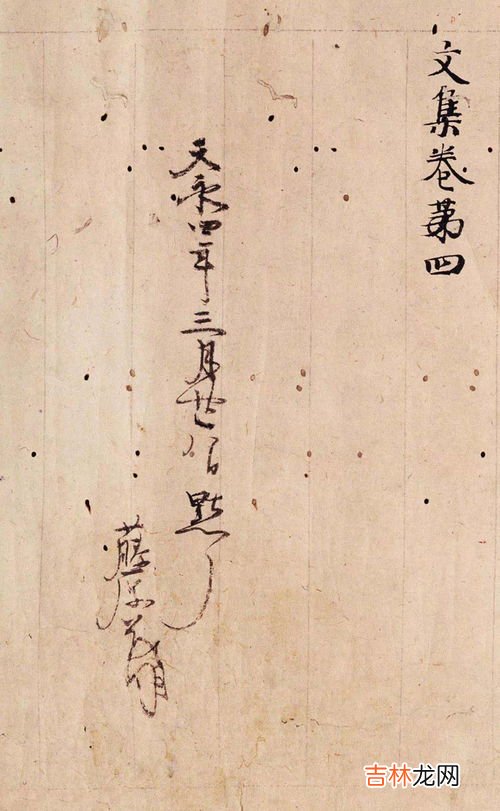 文集卷第四
天永四年三月廿八日點了
藤原茂明
吉林龙网